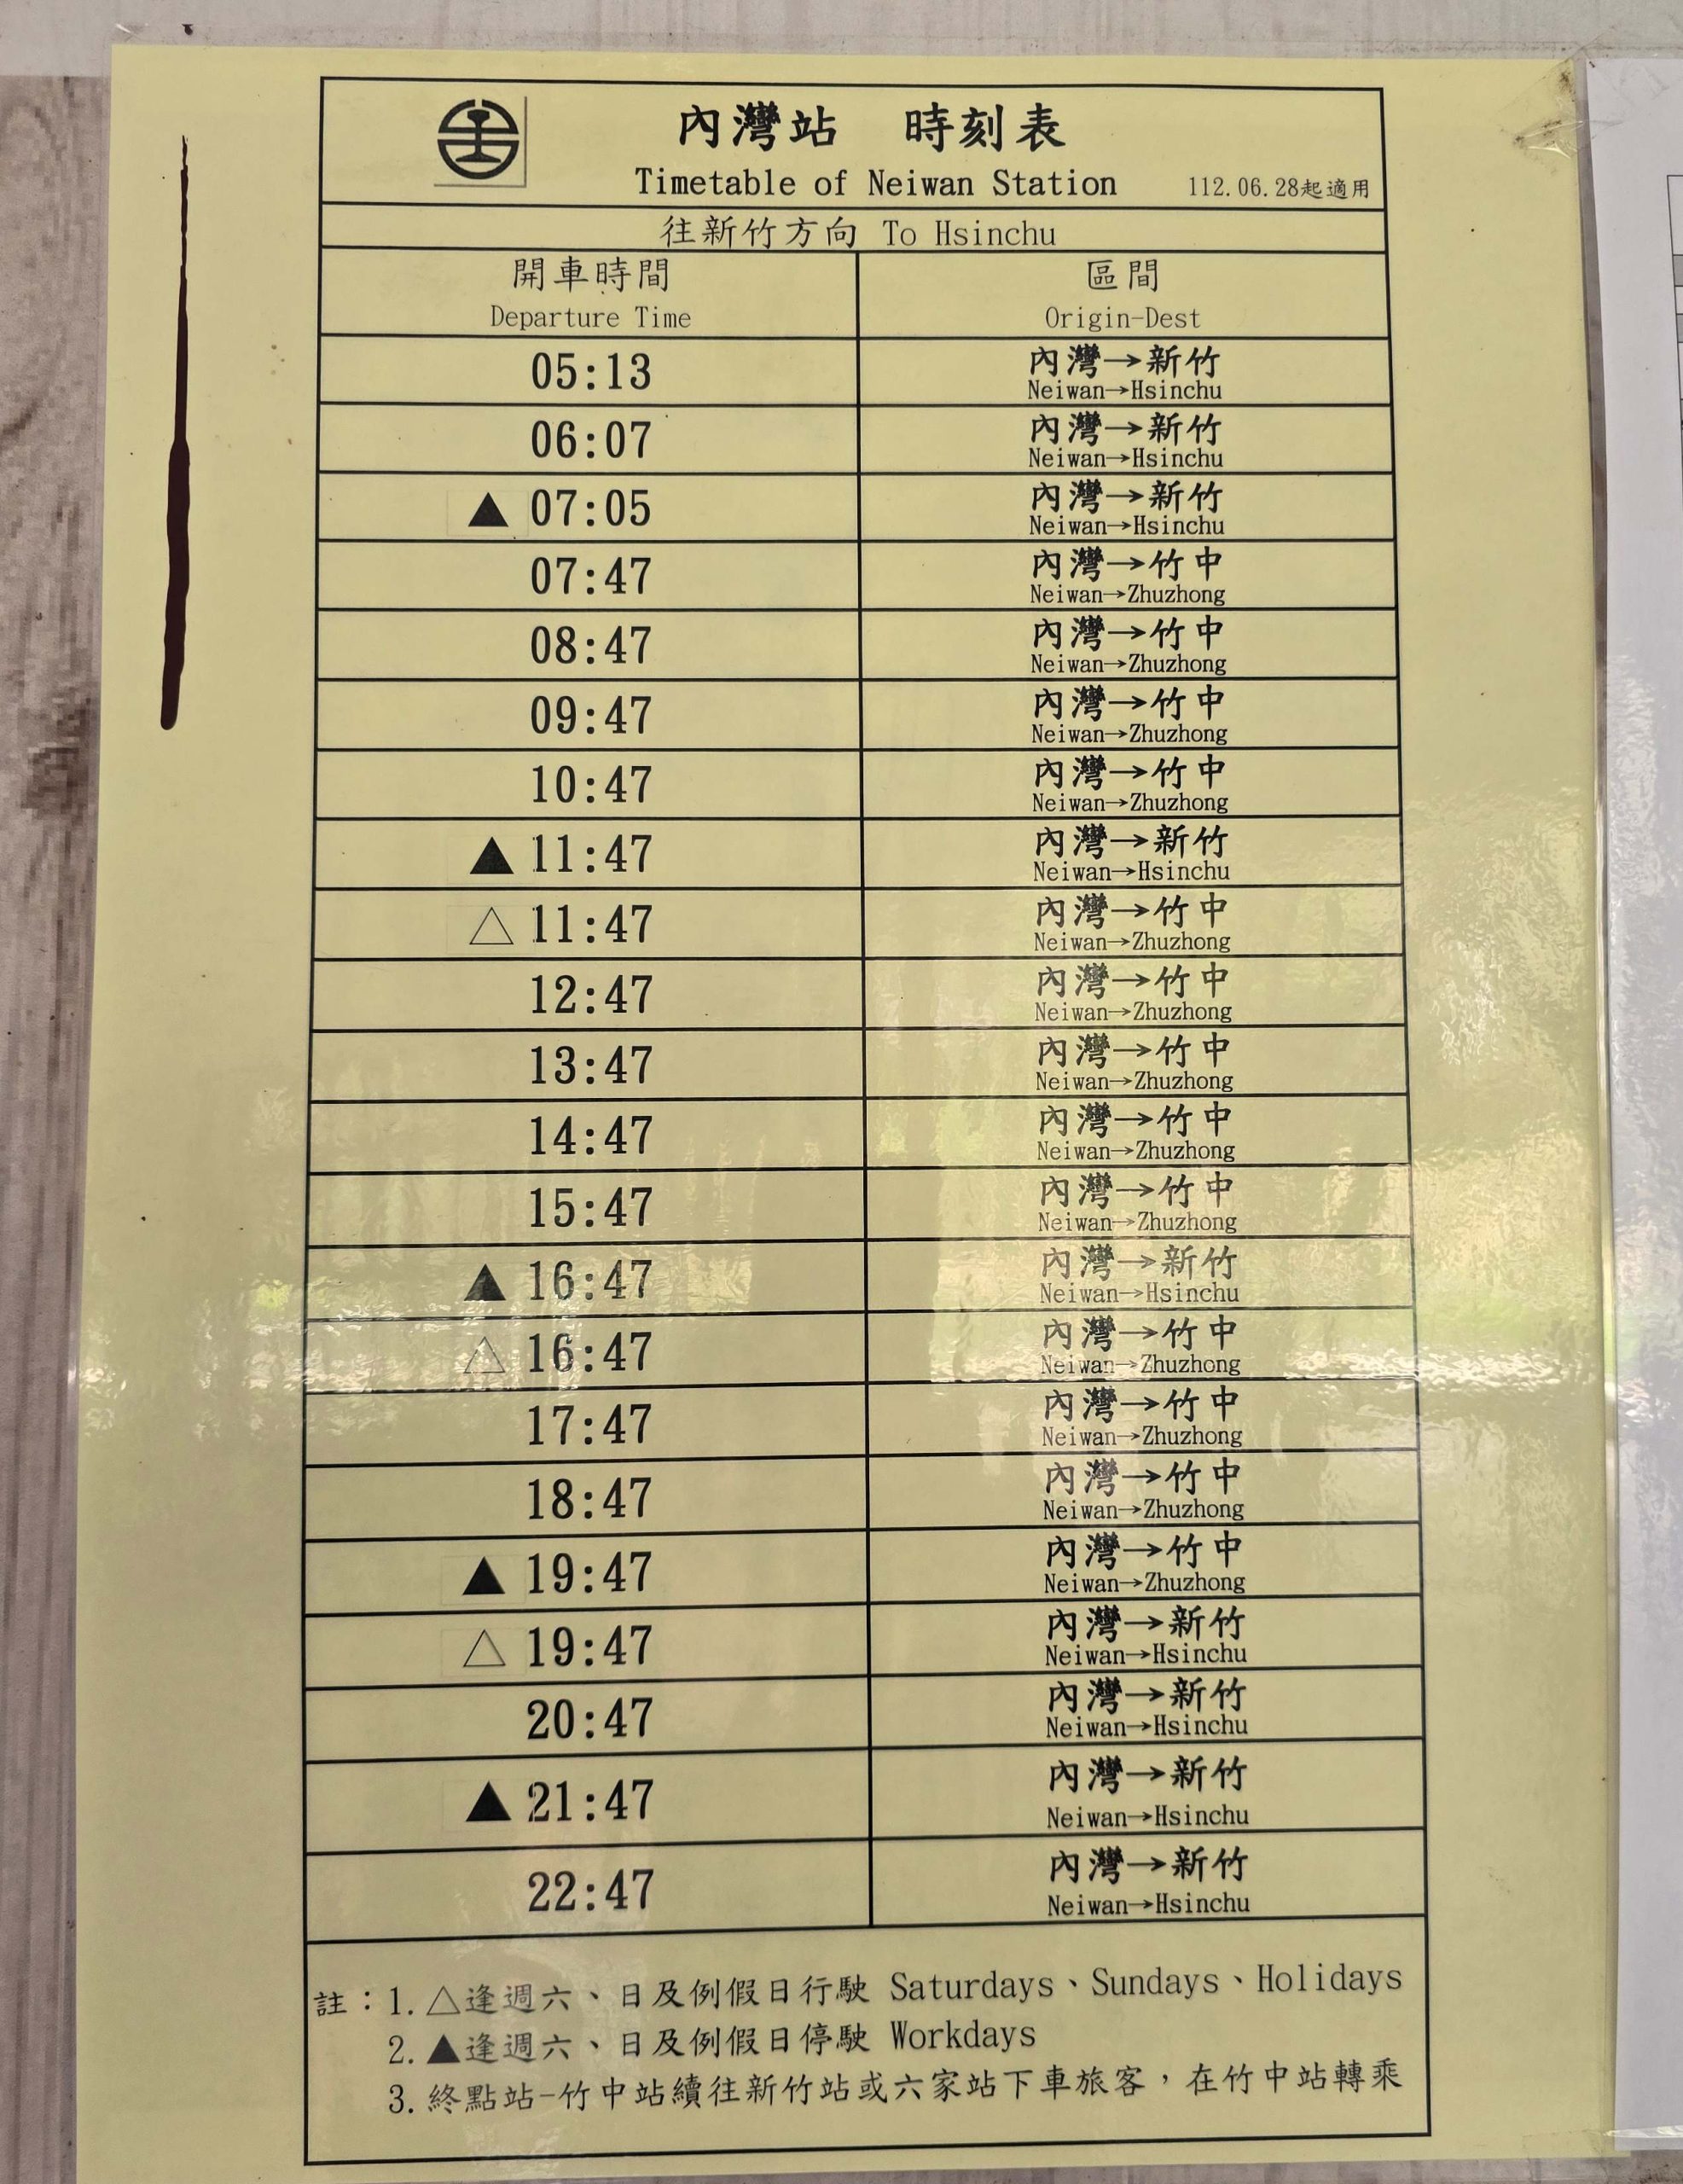 內灣站 時刻表
Timetable of Neiwan Station 112.06.28起適用
往新竹方向 To Hsinchu
開車時間 區間
Departure Time Origin-Dest
05:13 內灣→新竹
Neiwan→Hsinchu
06:07 內灣→新竹
Neiwan→Hsinchu
▲ 07:05 內灣→新竹
Neiwan→Hsinchu
07:47 內灣→竹中
Neiwan→Zhuzhong
08:47 內灣→竹中
Neiwan→Zhuzhong
09:47 內灣→竹中
Neiwan→Zhuzhong
10:47 內灣→竹中
Neiwan→Zhuzhong
▲ 11:47 內灣→新竹
Neiwan→Hsinchu
△ 11:47 內灣→竹中
Neiwan→Zhuzhong
12:47 內灣→竹中
Neiwan→Zhuzhong
13:47 內灣→竹中
Neiwan→Zhuzhong
14:47 內灣→竹中
Neiwan→Zhuzhong
15:47 內灣→竹中
Neiwan→Zhuzhong
▲ 16:47 內灣→新竹
Neiwan→Hsinchu
△ 16:47 內灣→竹中
Neiwan→Zhuzhong
17:47 內灣→竹中
Neiwan→Zhuzhong
18:47 內灣→竹中
Neiwan→Zhuzhong
▲ 19:47 內灣→竹中
Neiwan→Zhuzhong
△ 19:47 內灣→新竹
Neiwan→Hsinchu
20:47 內灣→新竹
Neiwan→Hsinchu
▲ 21:47 內灣→新竹
Neiwan→Hsinchu
22:47 內灣→新竹
Neiwan→Hsinchu
註：1. △逢週六、日及例假日行駛 Saturdays、Sundays、Holidays
2. ▲逢週六、日及例假日停駛 Workdays
3. 終點站-竹中站續往新竹站或六家站下車旅客，在竹中站轉乘